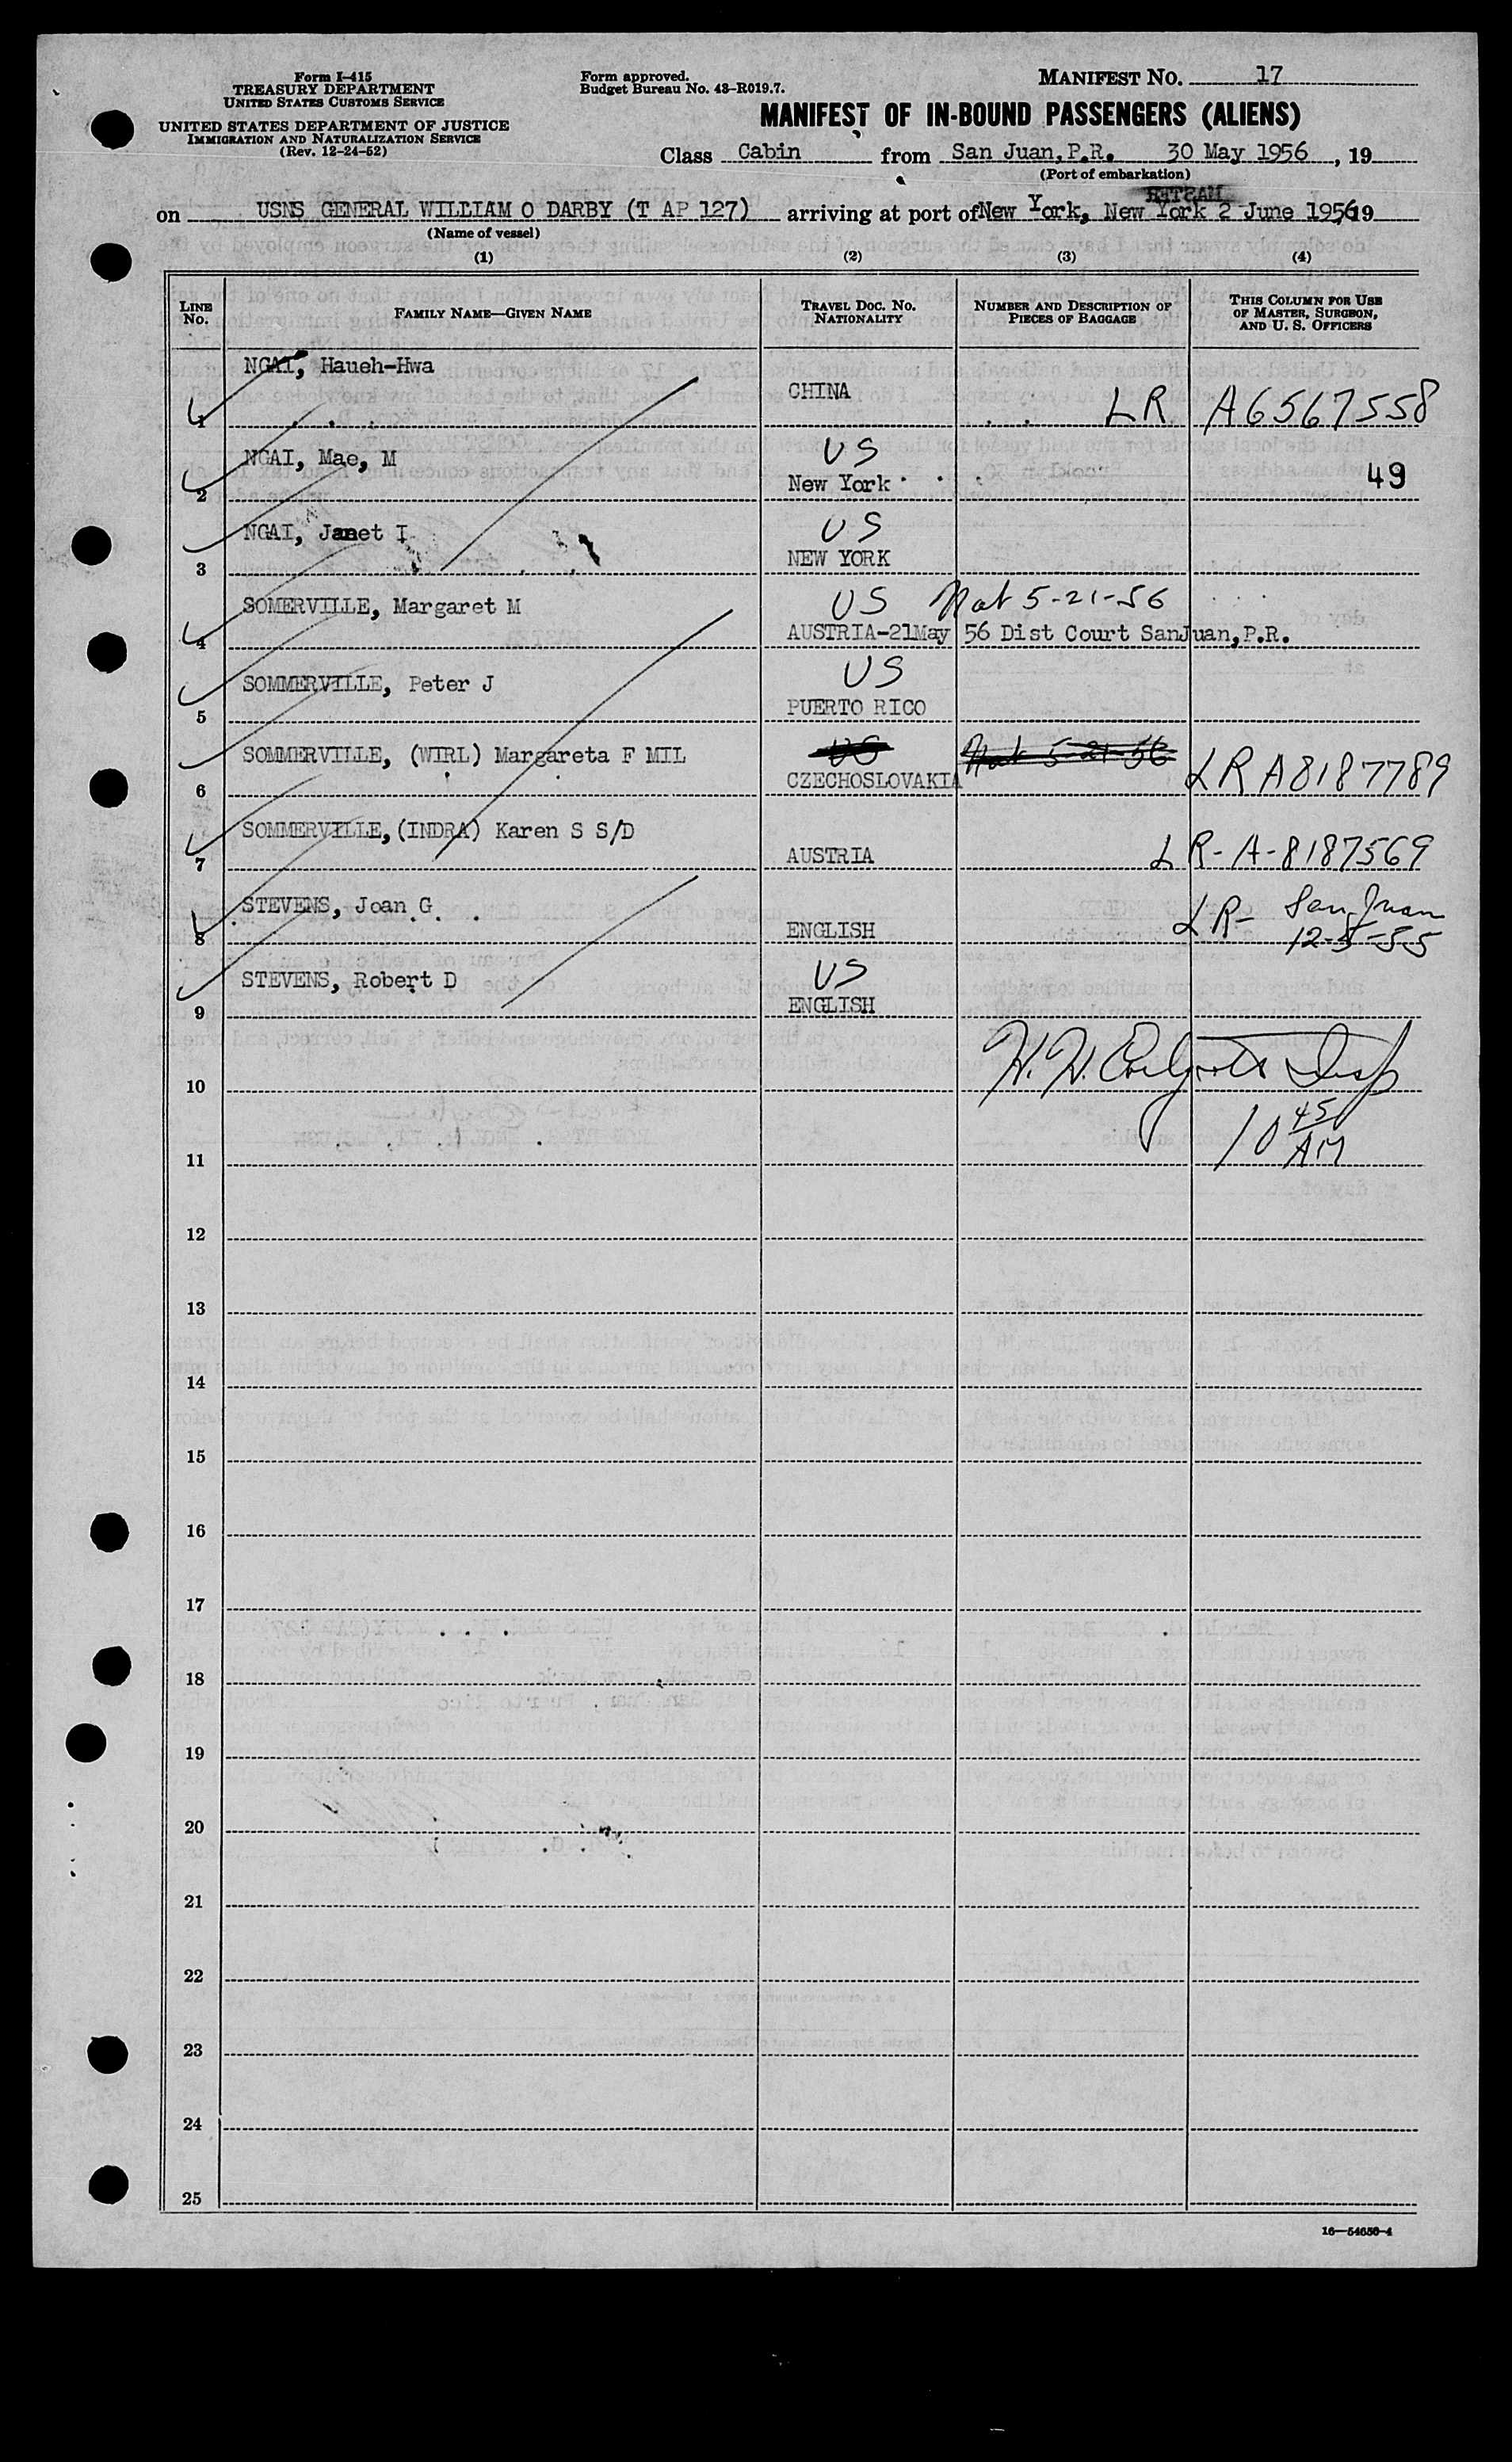 Form I-415
TREASURY DEPARTMENT
UNITED STATES CUSTOMS SERVICE
UNITED STATES DEPARTMENT OF JUSTICE
IMMIGRATION AND NATURALIZATION SERVICE
(Rev. 12-24-52)
Form approved.
Budget Bureau No. 43-R019.7.
MANIFEST NO. 17
MANIFEST OF IN-BOUND PASSENGERS (ALIENS)
Class Cabin from San Juan, P.R. 30 May 1956, 19
(Port of embarkation)
on USNS GENERAL WILLIAM O DARBY (T AP 127) arriving at port of New York, New York 2 June 1956 19
(Name of vessel)
(1) (2) (3) (4)
LINE No. FAMILY NAME—GIVEN NAME TRAVEL DOC. NO. NATIONALITY NUMBER AND DESCRIPTION OF PIECES OF BAGGAGE THIS COLUMN FOR USE OF MASTER, SURGEON, AND U. S. OFFICERS
1 NGAI, Haueh-Hwa CHINA LR A6567558
2 NGAI, Mae, M US New York 49
3 NGAI, Janet I US NEW YORK
4 SOMERVILLE, Margaret M US Nat 5-21-56
AUSTRIA-21May 56 Dist Court SanJuan, P.R.
5 SOMMERVILLE, Peter J US PUERTO RICO
6 SOMMERVILLE, (WIRL) Margareta F MIL US Nat 5-21-56 CZECHOSLOVAKIA LR A8187789
7 SOMMERVILLE, (INDRA) Karen S S/D AUSTRIA LR-A-8187569
8 STEVENS, Joan G ENGLISH LR- San Juan 12-5-55
9 STEVENS, Robert D US ENGLISH
10
10 45 AM
11
12
13
14
15
16
17
18
19
20
21
22
23
24
25
16—54650-4